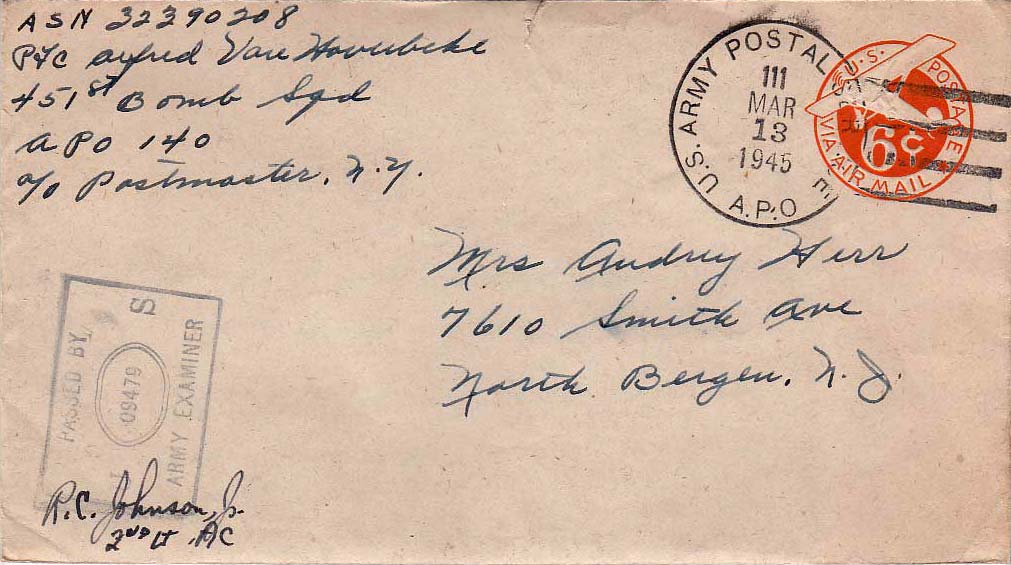 ASN 32390208
Pfc Alfred Van Hoverbeke
451st Bomb Sqd
APO 140
c/o Postmaster, N.Y.
U.S. ARMY POSTAL
111
MAR
13
1945
A.P.O
U.S. POSTAGE
6¢
VIA AIR MAIL
Mrs Audrey Herr
7610 Smith Ave
North Bergen, N.J.
PASSED BY
S
09479
ARMY EXAMINER
R.C. Johnson, Jr.
2nd Lt AC